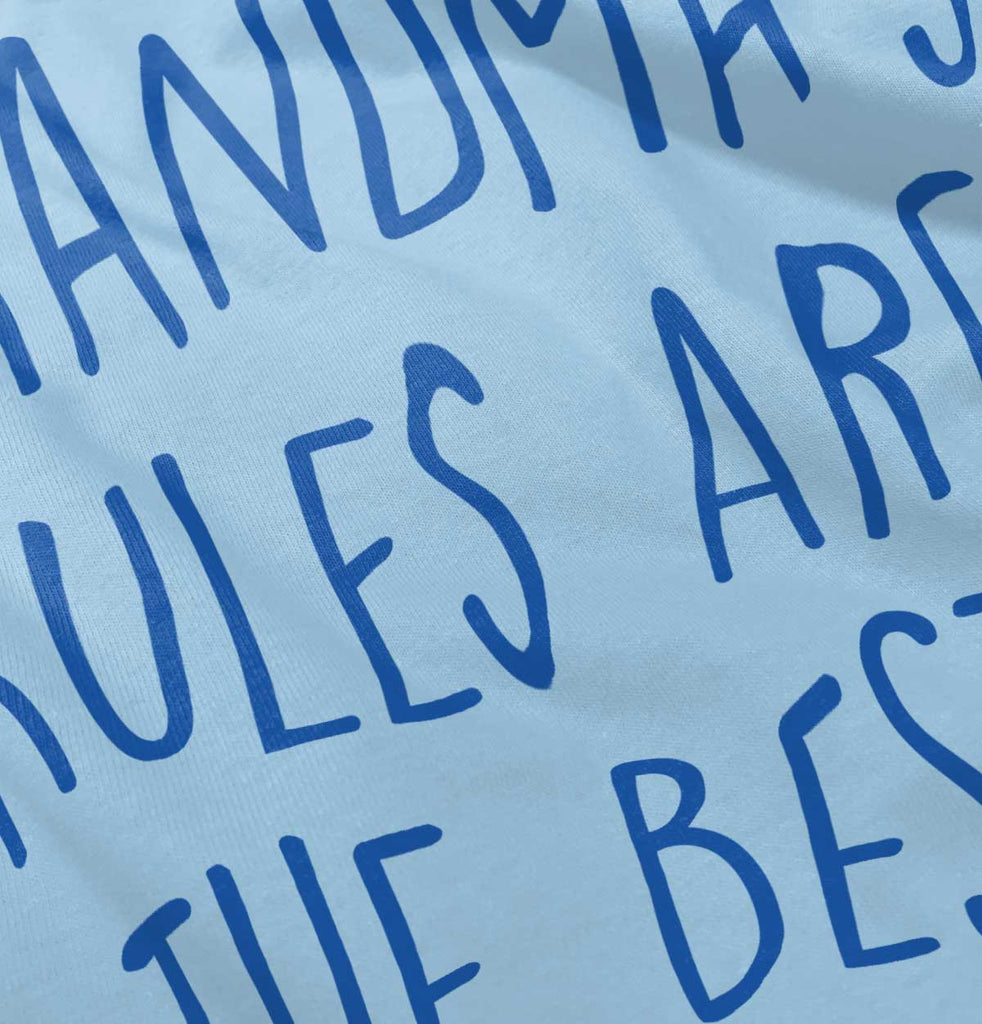 ANDMA S
RULES ARE
THE BEST